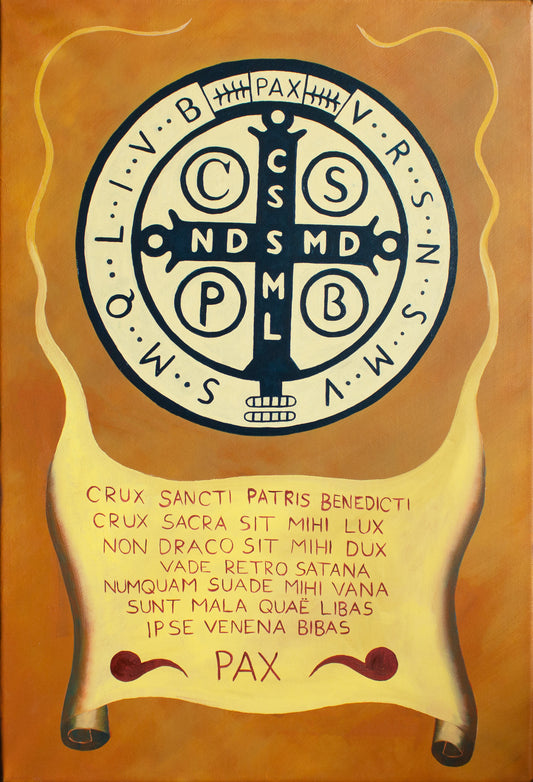 PAX
V R S N S M V
S M Q L I V B
C S
C S S M L
N D S M D
P B
CRUX SANCTI PATRIS BENEDICTI
CRUX SACRA SIT MIHI LUX
NON DRACO SIT MIHI DUX
VADE RETRO SATANA
NUMQUAM SUADE MIHI VANA
SUNT MALA QUAË LIBAS
IPSE VENENA BIBAS
PAX